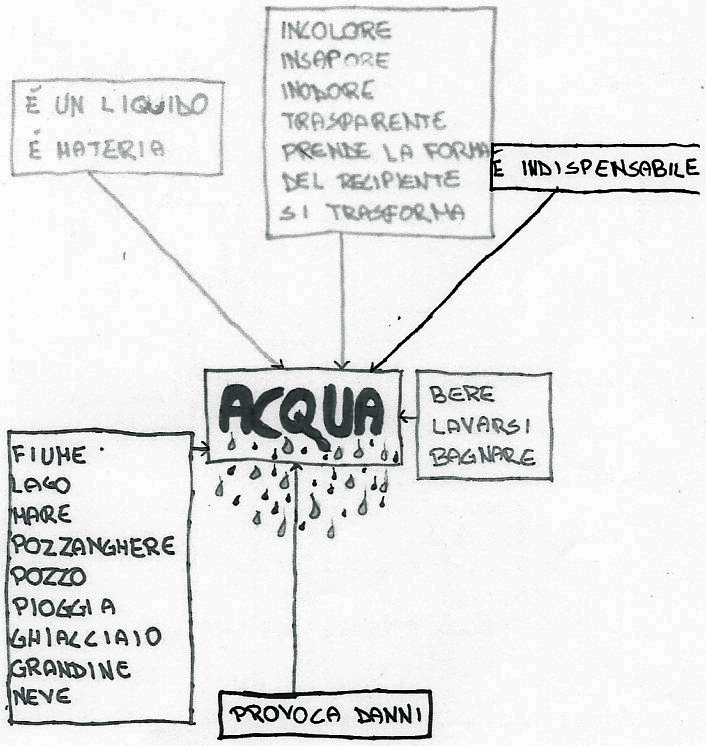 INCOLORE
INSAPORE
INODORE
TRASPARENTE
PRENDE LA FORMA
DEL RECIPIENTE
SI TRASFORMA
É UN LIQUIDO
É MATERIA
É INDISPENSABILE
ACQUA
BERE
LAVARSI
BAGNARE
FIUME
LAGO
MARE
POZZANGHERE
POZZO
PIOGGIA
GHIACCIAIO
GRANDINE
NEVE
PROVOCA DANNI